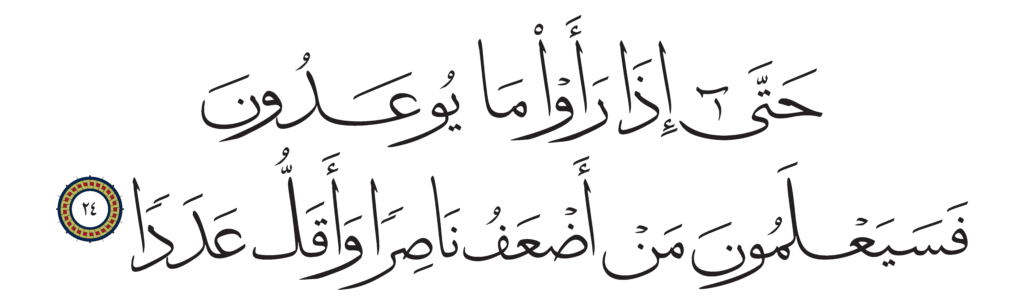 حَتَّىٰٓ إِذَا رَأَوْا۟ مَا يُوعَدُونَ
فَسَيَعْلَمُونَ مَنْ أَضْعَفُ نَاصِرًا وَأَقَلُّ عَدَدًا ٢٤